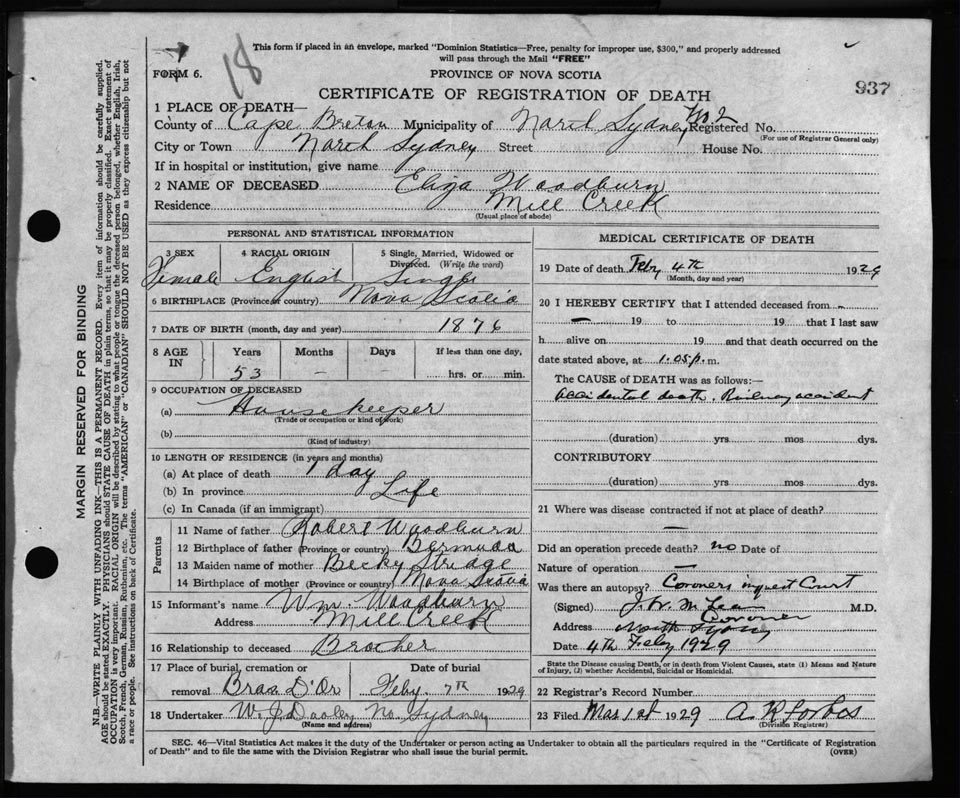 18
This form if placed in an envelope, marked "Dominion Statistics—Free, penalty for improper use, $300," and properly addressed
will pass through the Mail "FREE"
FORM 6.
PROVINCE OF NOVA SCOTIA
937
CERTIFICATE OF REGISTRATION OF DEATH
1 PLACE OF DEATH—
County of Cape Breton Municipality of North Sydney No. 2 Registered No.
(For use of Registrar General only)
City or Town North Sydney Street House No.
If in hospital or institution, give name
2 NAME OF DECEASED Eliza Woodburn
Residence Mill Creek
(Usual place of abode)
PERSONAL AND STATISTICAL INFORMATION
3 SEX 4 RACIAL ORIGIN 5 Single, Married, Widowed or Divorced. (Write the word)
Female English Single
6 BIRTHPLACE (Province or country) Nova Scotia
7 DATE OF BIRTH (month, day and year) 1876
8 AGE IN Years Months Days If less than one day,
53 – – hrs. or min.
9 OCCUPATION OF DECEASED
(a) Housekeeper
(Trade or occupation or kind of work)
(b)
(Kind of industry)
10 LENGTH OF RESIDENCE (in years and months)
(a) At place of death 1 day
(b) In province Life
(c) In Canada (if an immigrant)
Parents
11 Name of father Robert Woodburn
12 Birthplace of father (Province or country) Bermuda
13 Maiden name of mother Becky Stridge
14 Birthplace of mother (Province or country) Nova Scotia
15 Informant's name Wm. Woodburn
Address Mill Creek
16 Relationship to deceased Brother
17 Place of burial, cremation or Date of burial
removal Bras D'Or Feby. 7th 1929
18 Undertaker W. J. Dooley No. Sydney
(Name and address)
MEDICAL CERTIFICATE OF DEATH
19 Date of death Feby 4th 1929
(Month, day and year)
20 I HEREBY CERTIFY that I attended deceased from
— 19 to 19 that I last saw
h alive on 19 and that death occurred on the
date stated above, at 1.05 p. m.
The CAUSE OF DEATH was as follows:—
Accidental death. Railway accident
(duration) yrs mos dys.
CONTRIBUTORY
(duration) yrs. mos. dys.
21 Where was disease contracted if not at place of death?
—
Did an operation precede death? no Date of
Nature of operation —
Was there an autopsy? Coroners inquest Court
(Signed) J. W. McLean M.D.
Coroner
Address North Sydney
Date 4th Feby 1929
State the Disease causing Death, or in death from Violent Causes, state (1) Means and Nature
of Injury, (2) whether Accidental, Suicidal or Homicidal.
22 Registrar's Record Number
23 Filed Mar 1st 1929 A R Forbes
(Division Registrar)
SEC. 46—Vital Statistics Act makes it the duty of the Undertaker or person acting as Undertaker to obtain all the particulars required in the "Certificate of Registration
of Death" and to file the same with the Division Registrar who shall issue the burial permit. (OVER)
MARGIN RESERVED FOR BINDING
N.B.—WRITE PLAINLY WITH UNFADING INK—THIS IS A PERMANENT RECORD. Every item of information should be carefully supplied.
AGE should be stated EXACTLY. PHYSICIANS should STATE CAUSE OF DEATH in plain terms, so that it may be properly classified. Exact statement of
OCCUPATION is very important. RACIAL ORIGIN will be described by stating to what people or tongue the deceased person belonged, whether English, Irish,
Scotch, French, German, Russian, Ruthenian, etc. The terms "AMERICAN" or "CANADIAN" SHOULD NOT BE USED as they express citizenship but not
a race or people. See instructions on back of Certificate.